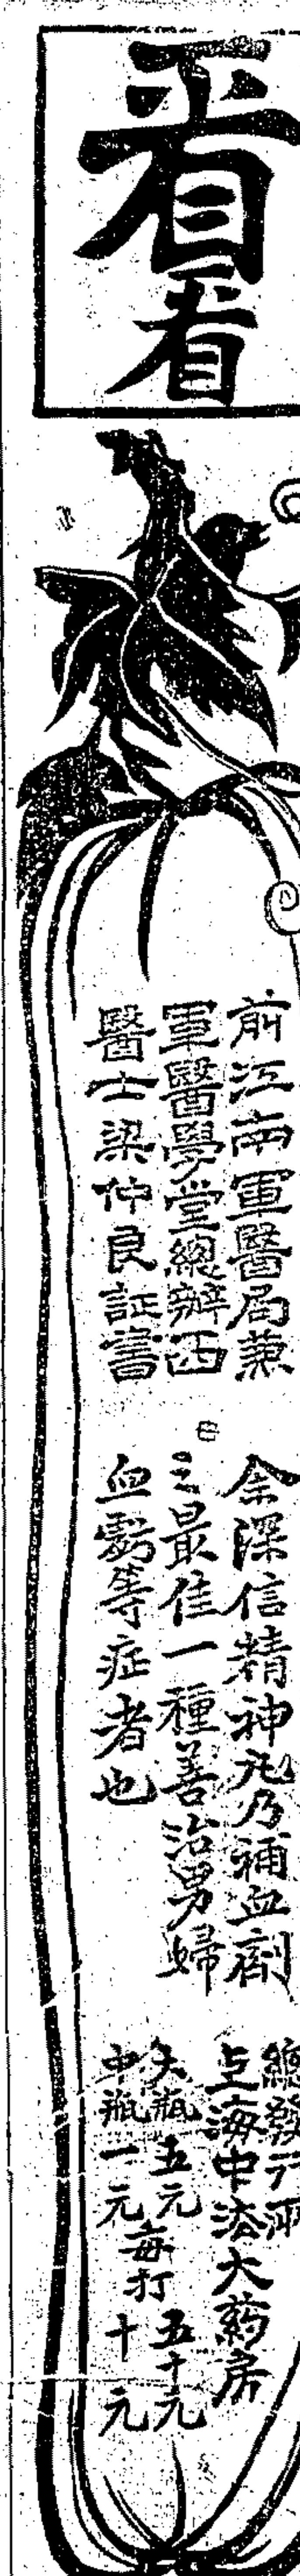 看看
前江南軍醫局兼
軍醫學堂總辦西
醫士梁仲良証書
曰
余深信精神丸乃補血劑
之最佳一種善治男婦
血虧等症者也
總發行所
上海中法大藥房
大瓶五元
中瓶一元
每打
五十元
十元